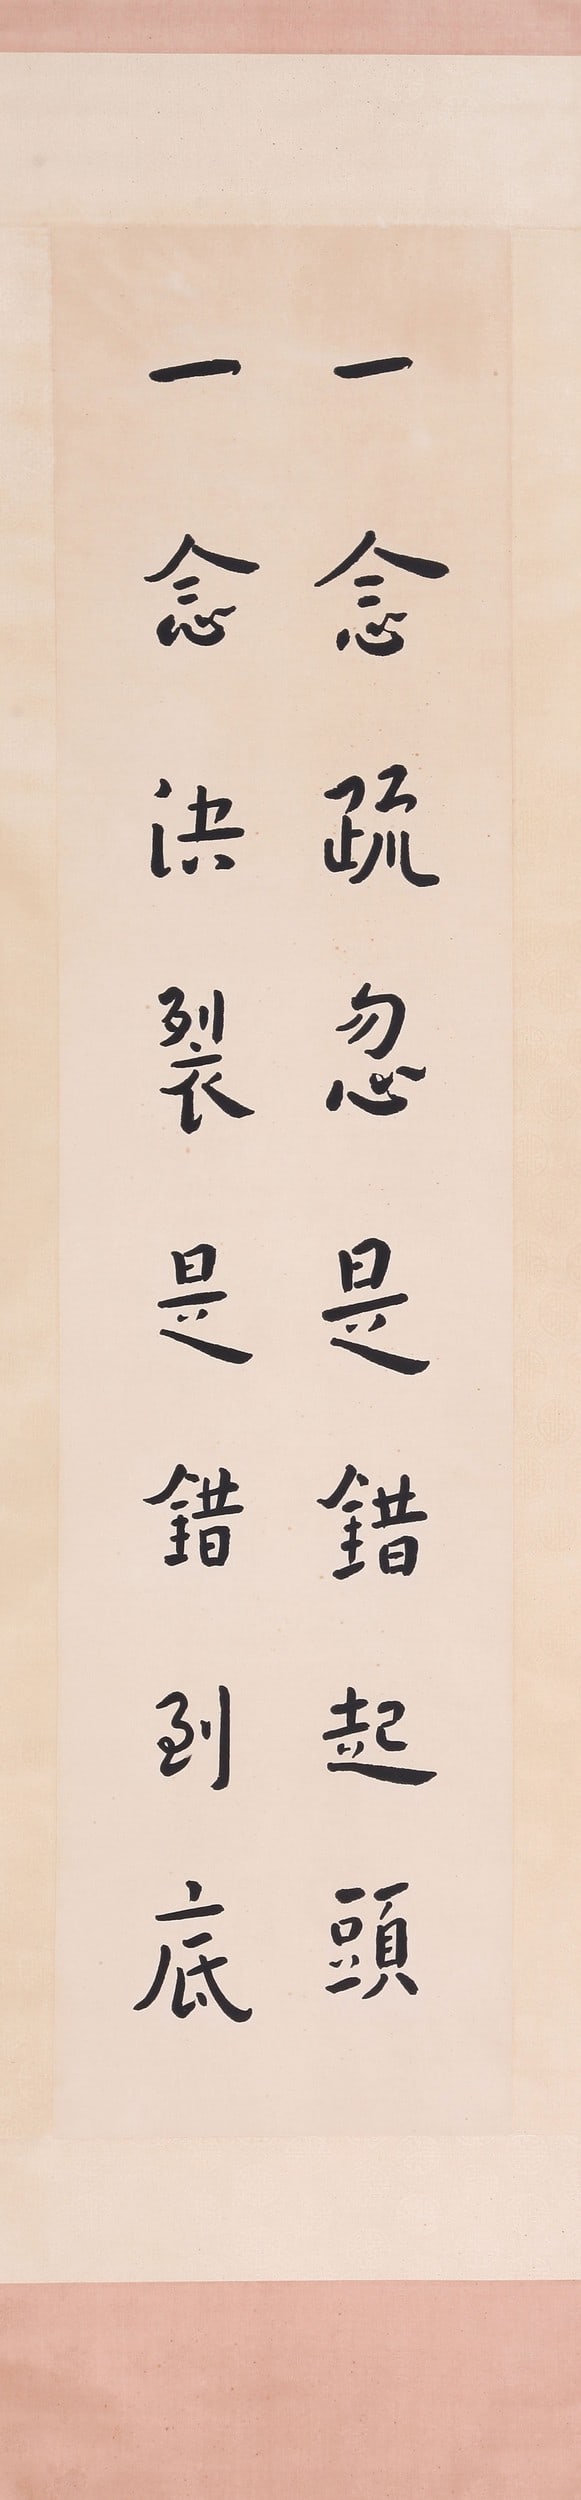 一念疏忽是錯起頭
一念決裂是錯到底